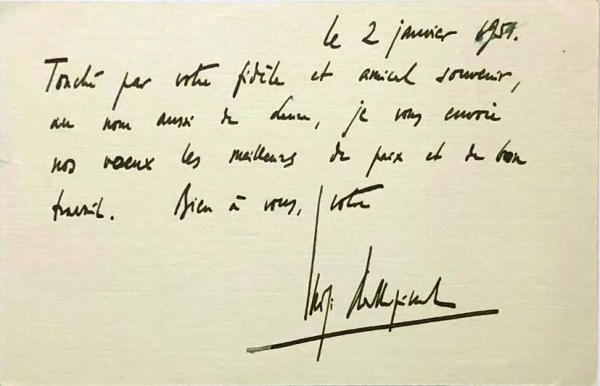 le 2 janvier 1951.
Touché par votre fidèle et amical souvenir,
au nom aussi de Laura, je vous envoie
nos voeux les meilleurs de paix et de bon
travail. Bien à vous, votre
Luigi Dallapiccola